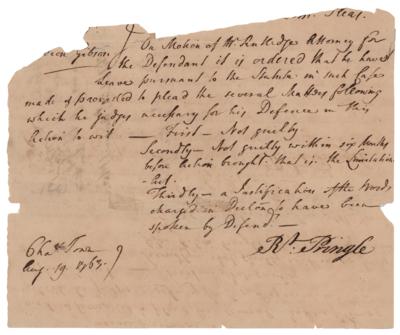 On Motion of Mr. Rutledge Attorney for
the Defendant it is ordered that he have
leave pursuant to the Statute in such Case
made & provided to plead the several Matters following
which he judges necessary for his Defence in this
Action to wit — First — Not guilty
Secondly — Not guilty within six Months
before Action brought that is the Limitation
Act.
Thirdly — a Justification of the Words
charged in Declon. to have been
spoken by Defend.t —
Cha.s Town
Aug. 19. 1763.
R.t Pringle